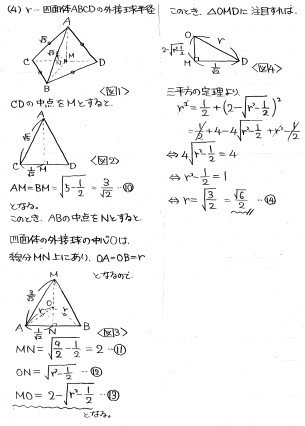 (4) r… 四面体ABCDの外接球半径
A
√5
M
C
D
B
<図1>
CDの中点をMとすると、
A
√5
C
1/√2
M
D
<図2>
AM=BM=√(5-1/2)=3/√2 …⑩
となる。
このとき、ABの中点をNとすると、
四面体の外接球の中心Oは、
線分MN上にあり、OA=OB=r
となるので、
M
3/√2
O
r
r
A
1/√2
N
B
<図3>
MN=√(9/2-1/2)=2 …⑪
ON=√(r²-1/2) …⑫
MO=2-√(r²-1/2) …⑬
となる。
このとき、△OMDに注目すれば、
O
r
2-√(r²-1/2)
M
1/√2
D
<図4>
三平方の定理より、
r²=1/2+(2-√(r²-1/2))²
=1/2+4-4√(r²-1/2)+r²-1/2
⇔ 4√(r²-1/2)=4
⇔ r²-1/2=1
⇔ r=√(3/2)=√6/2 …⑭